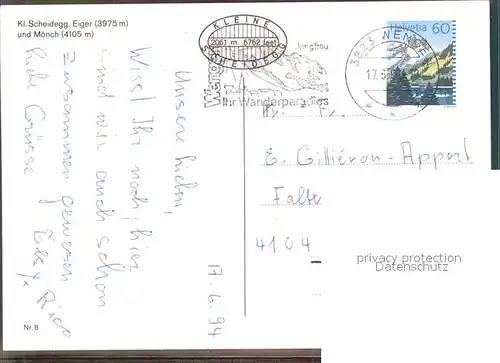 Kl. Scheidegg, Eiger (3975 m)
und Mönch (4105 m)
KLEINE
2061 m 6762 feet
SCHEIDEGG
Jungfrau
Ihr Wanderparadies
3823 WENGEN
17.
Helvetia 60
Unsere Lieben,
Wisst Ihr noch, hier
sind wir auch schon
zusammen gewesen
Liebe Grüsse
17.6.94
E. Gilliéron-Appert
Falte
4104
privacy protection
Datenschutz
Nr. 8